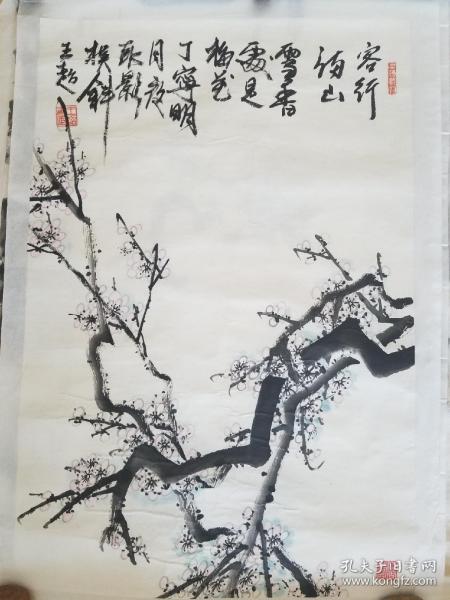 客行
倚山
雪香
處是
梅花
丁寧明
月夜
取影
橫斜
王超
孔夫子旧书网
BOOK.KONGFZ.COM